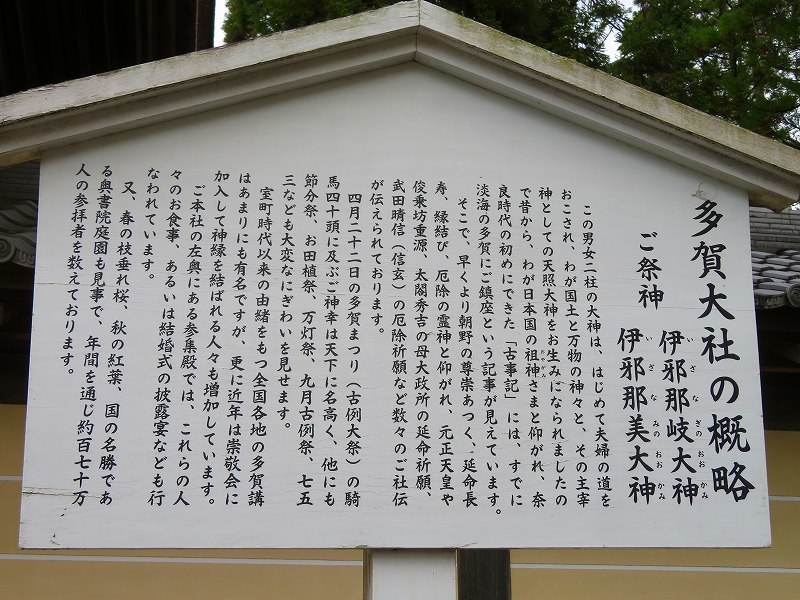 多賀大社の概略
ご祭神
伊邪那岐大神
いざなぎのおおかみ
伊邪那美大神
いざなみのおおかみ
この男女二柱の大神は、はじめて夫婦の道を
おこされ、わが国土と万物の神々と、その主宰
神としての天照大神をお生みになられましたの
で昔から、わが日本国の祖神さまと仰がれ、奈
おやがみ
良時代の初めにできた「古事記」には、すでに
淡海の多賀にご鎮座という記事が見えています。
そこで、早くより朝野の尊崇あつく、延命長
寿、縁結び、厄除の霊神と仰がれ、元正天皇や
俊乗坊重源、太閤秀吉の母大政所の延命祈願、
武田晴信（信玄）の厄除祈願など数々のご社伝
が伝えられております。
四月二十二日の多賀まつり（古例大祭）の騎
馬四十頭に及ぶご神幸は天下に名高く、他にも
節分祭、お田植祭、万灯祭、九月古例祭、七五
三なども大変なにぎわいを見せます。
室町時代以来の由緒をもつ全国各地の多賀講
はあまりにも有名ですが、更に近年は崇敬会に
加入して神縁を結ばれる人々も増加しています。
ご本社の左奥にある参集殿では、これらの人
々のお食事、あるいは結婚式の披露宴なども行
なわれています。
又、春の枝垂れ桜、秋の紅葉、国の名勝であ
る奥書院庭園も見事で、年間を通じ約百七十万
人の参拝者を数えております。